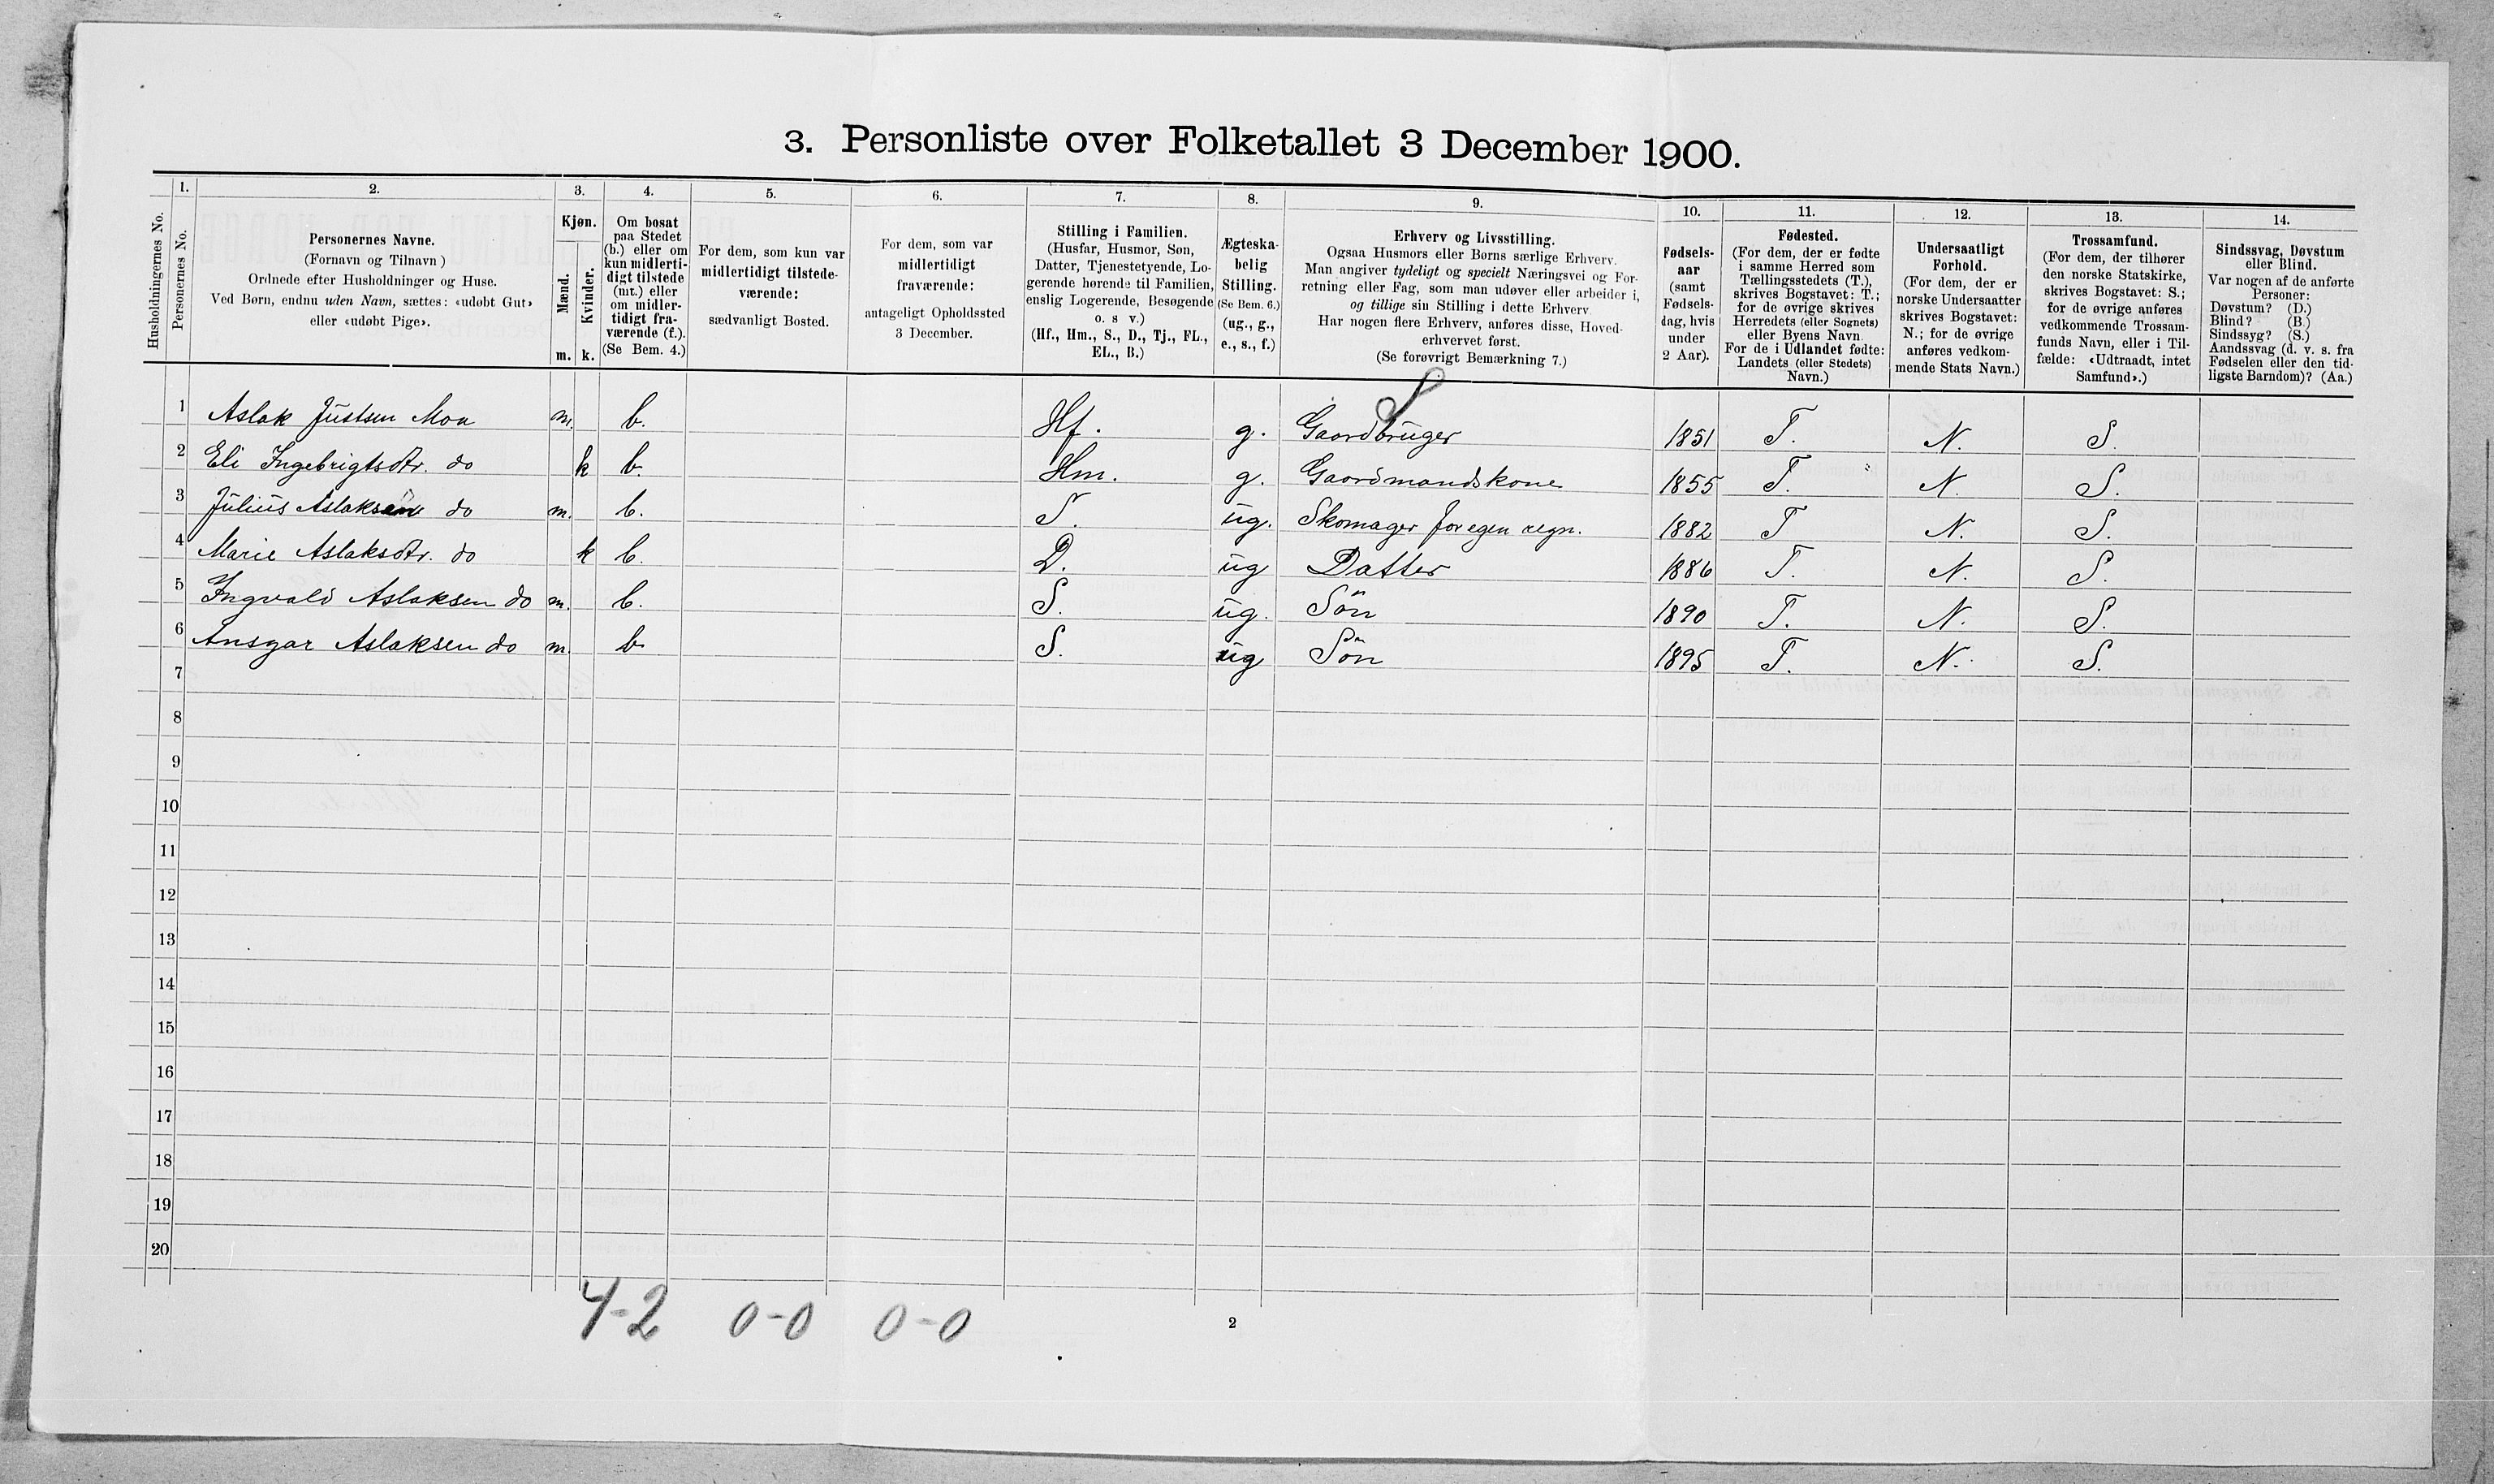 3. Personliste over Folketallet 3 December 1900.
Husholdningernes No.
1.
Personernes No.
2.
Personernes Navne.
(Fornavn og Tilnavn)
Ordnede efter Husholdninger og Huse.
Ved Børn, endnu uden Navn, sættes: «udøbt Gut»
eller «udøbt Pige».
3.
Kjøn.
Mænd.
Kvinder.
m. k.
4.
Om bosat
paa Stedet
(b.) eller om
kun midlerti-
digt tilstede
(mt.) eller
om midler-
tidigt fra-
værende (f.).
(Se Bem. 4.)
5.
For dem, som kun var
midlertidigt tilstede-
værende:
sædvanligt Bosted.
6.
For dem, som var
midlertidigt
fraværende:
antageligt Opholdssted
3 December.
7.
Stilling i Familien.
(Husfar, Husmor, Søn,
Datter, Tjenestetyende, Lo-
gerende hørende til Familien,
enslig Logerende, Besøgende
o. s v.)
(Hf., Hm., S., D., Tj., FL.,
EL., B.)
8.
Ægteska-
belig
Stilling.
(Se Bem. 6.)
(ug., g.,
e., s., f.)
9.
Erhverv og Livsstilling.
Ogsaa Husmors eller Børns særlige Erhverv.
Man angiver tydeligt og specielt Næringsvei og For-
retning eller Fag, som man udøver eller arbeider i,
og tillige sin Stilling i dette Erhverv
Har nogen flere Erhverv, anføres disse, Hoved-
erhvervet først.
(Se forøvrigt Bemærkning 7.)
10.
Fødsels-
aar
(samt
Fødsels-
dag, hvis
under
2 Aar).
11.
Fødested.
(For dem, der er fødte
i samme Herred som
Tællingsstedets (T.),
skrives Bogstavet: T.;
for de øvrige skrives
Herredets (eller Sognets)
eller Byens Navn.
For de i Udlandet fødte:
Landets (eller Stedets)
Navn.)
12.
Undersaatligt
Forhold.
(For dem, der er
norske Undersaatter
skrives Bogstavet:
N.; for de øvrige
anføres vedkom-
mende Stats Navn.)
13.
Trossamfund.
(For dem, der tilhører
den norske Statskirke,
skrives Bogstavet: S.;
for de øvrige anføres
vedkommende Trossam-
funds Navn, eller i Til-
fælde: «Udtraadt, intet
Samfund».)
14.
Sindssvag, Døvstum
eller Blind.
Var nogen af de anførte
Personer:
Døvstum? (D.)
Blind? (B.)
Sindssyg? (S.)
Aandssvag (d. v. s. fra
Fødselen eller den tid-
ligste Barndom)? (Aa.)
1 Aslak Justsen Moa m. b. Hf. g. Gaardbruger 1851 T. N. S.
2 Eli Ingebrigtsdtr. do k b. Hm. g. Gaardmandskone 1855 T. N. S.
3 Julius Aslaksen do m. b. S. ug. Skomager for egen regn. 1882 T N. S.
4 Marie Aslaksdtr. do k b. D. ug Datter 1886 T. N. S.
5 Ingvald Aslaksen do m. b. S. ug. Sön 1890 T. N. S.
6 Ansgar Aslaksen do m. b S. ug Sön 1895 T. N. S.
7
8
9
10
11
12
13
14
15
16
17
18
19
20
4-2 0-0 0-0
2